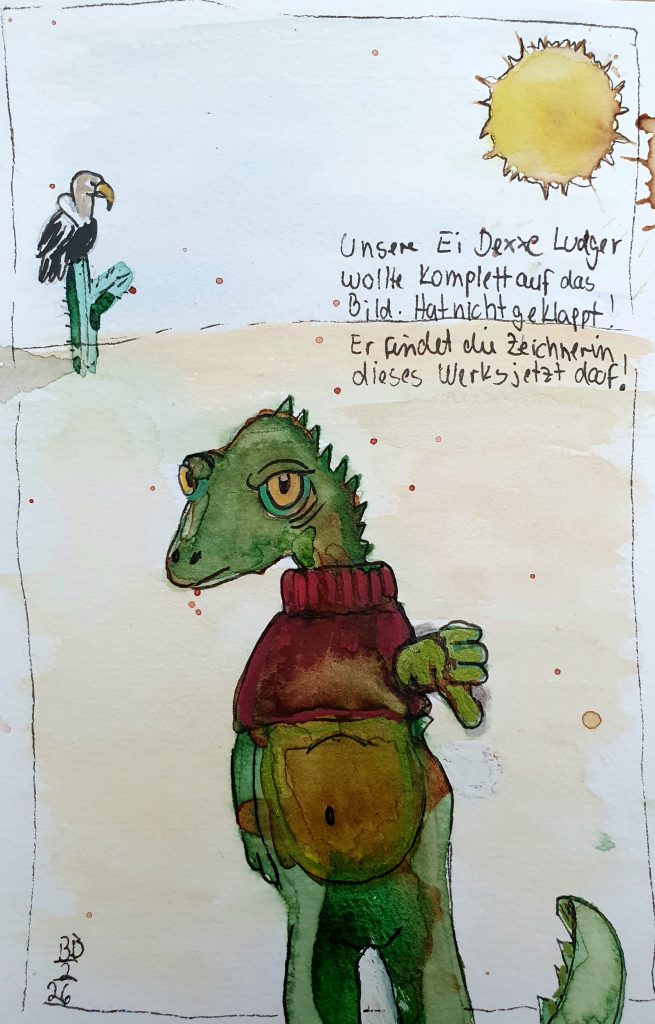 Unsere Ei Dexxe Ludger
wollte komplett auf das
Bild. Hat nicht geklappt!
Er findet die Zeichnerin
dieses Werks jetzt doof!
BD
2
26